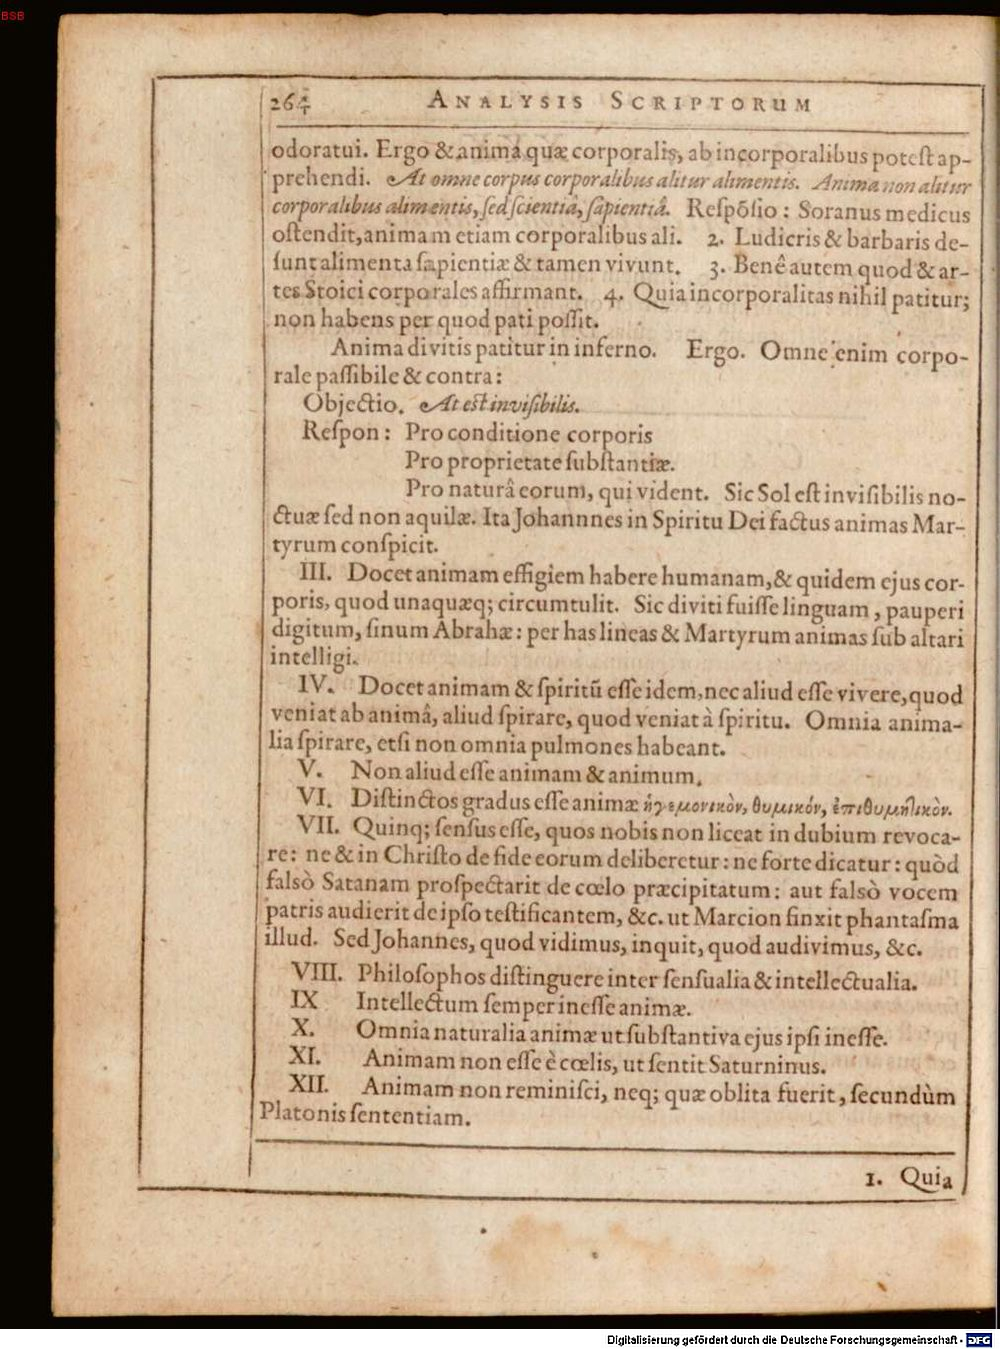 BSB
264 ANALYSIS SCRIPTORUM
odoratui. Ergo & anima quæ corporalis, ab incorporalibus potest ap-
prehendi. At omne corpus corporalibus alitur alimentis. Anima non alitur
corporalibus alimentis, sed scientiâ, sapientiâ. Respõsio : Soranus medicus
ostendit, animam etiam corporalibus ali. 2. Ludicris & barbaris de-
sunt alimenta sapientiæ & tamen vivunt. 3. Benê autem quod & ar-
tes Stoici corporales affirmant. 4. Quia incorporalitas nihil patitur;
non habens per quod pati possit.
Anima divitis patitur in inferno. Ergo. Omne enim corpo-
rale passibile & contra :
Objectio. At est invisibilis.
Respon : Pro conditione corporis
Pro proprietate substantiæ.
Pro naturâ eorum, qui vident. Sic Sol est invisibilis no-
ctuæ sed non aquilæ. Ita Johannnes in Spiritu Dei factus animas Mar-
tyrum conspicit.
III. Docet animam effigiem habere humanam, & quidem ejus cor-
poris, quod unaquæq; circumtulit. Sic diviti fuisse linguam , pauperi
digitum, sinum Abrahæ : per has lineas & Martyrum animas sub altari
intelligi.
IV. Docet animam & spiritũ esse idem, nec aliud esse vivere, quod
veniat ab animâ, aliud spirare, quod veniat à spiritu. Omnia anima-
lia spirare, etsi non omnia pulmones habeant.
V. Non aliud esse animam & animum.
VI. Distinctos gradus esse animæ ἡγεμονικὸν, θυμικόν, ἐπιθυμητικὸν.
VII. Quinq; sensus esse, quos nobis non liceat in dubium revoca-
re : ne & in Christo de fide eorum deliberetur : ne forte dicatur : quòd
falsò Satanam prospectarit de cœlo præcipitatum : aut falsò vocem
patris audierit de ipso testificantem, &c. ut Marcion finxit phantasma
illud. Sed Johannes, quod vidimus, inquit, quod audivimus, &c.
VIII. Philosophos distinguere inter sensualia & intellectualia.
IX Intellectum semper inesse animæ.
X. Omnia naturalia animæ ut substantiva ejus ipsi inesse.
XI. Animam non esse è cœlis, ut sentit Saturninus.
XII. Animam non reminisci, neq; quæ oblita fuerit, secundùm
Platonis sententiam.
1. Quia
Digitalisierung gefördert durch die Deutsche Forschungsgemeinschaft - DFG